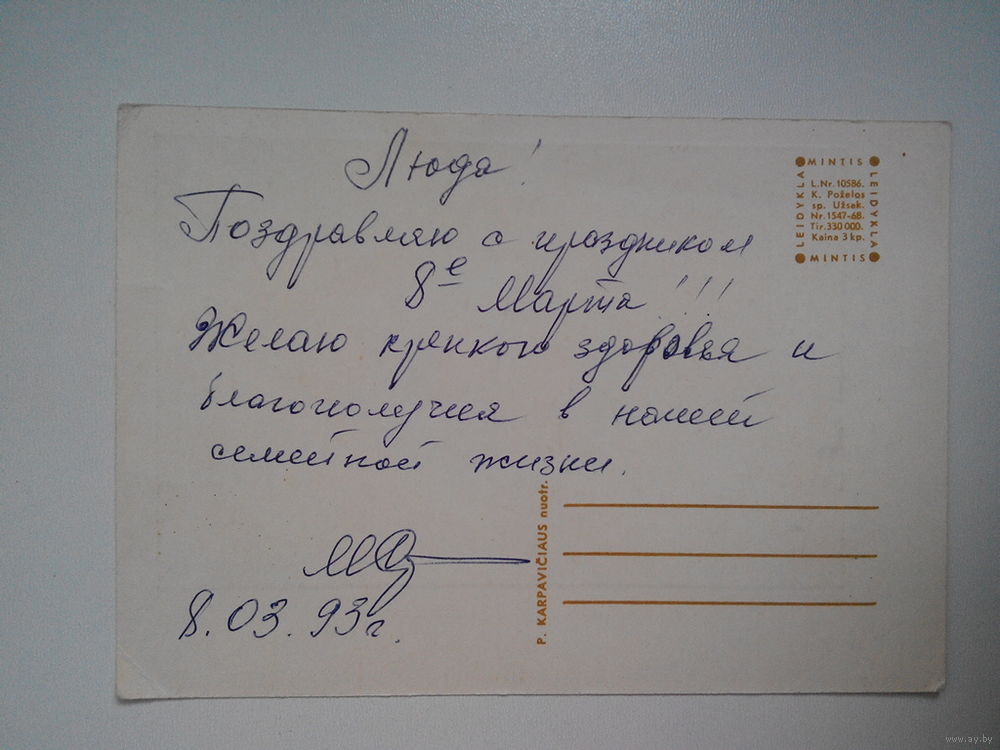 Люда!
Поздравляю с праздником
8е Марта!!!
Желаю крепкого здоровья и
благополучия в нашей
семейной жизни.
8.03.93г.
MINTIS
LEIDYKLA
L.Nr. 10586.
K. Poželos
sp. Užsak.
Nr. 1547-68.
Tir. 330 000.
Kaina 3 kp.
LEIDYKLA
MINTIS
P. KARPAVIČIAUS nuotr.
www.ay.by